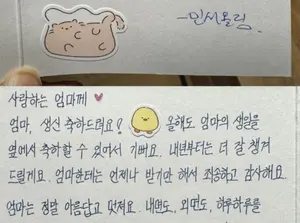 -민서올림-
사랑하는 엄마께 ♥
엄마, 생신 축하드려요! 올해도 엄마의 생일을
옆에서 축하할 수 있어서 기뻐요. 내년부터는 더 잘 챙겨
드릴게요. 엄마한테는 언제나 받기만 해서 죄송하고 감사해요
엄마는 정말 아름답고 멋져요. 내면도, 외면도, 하루하루를